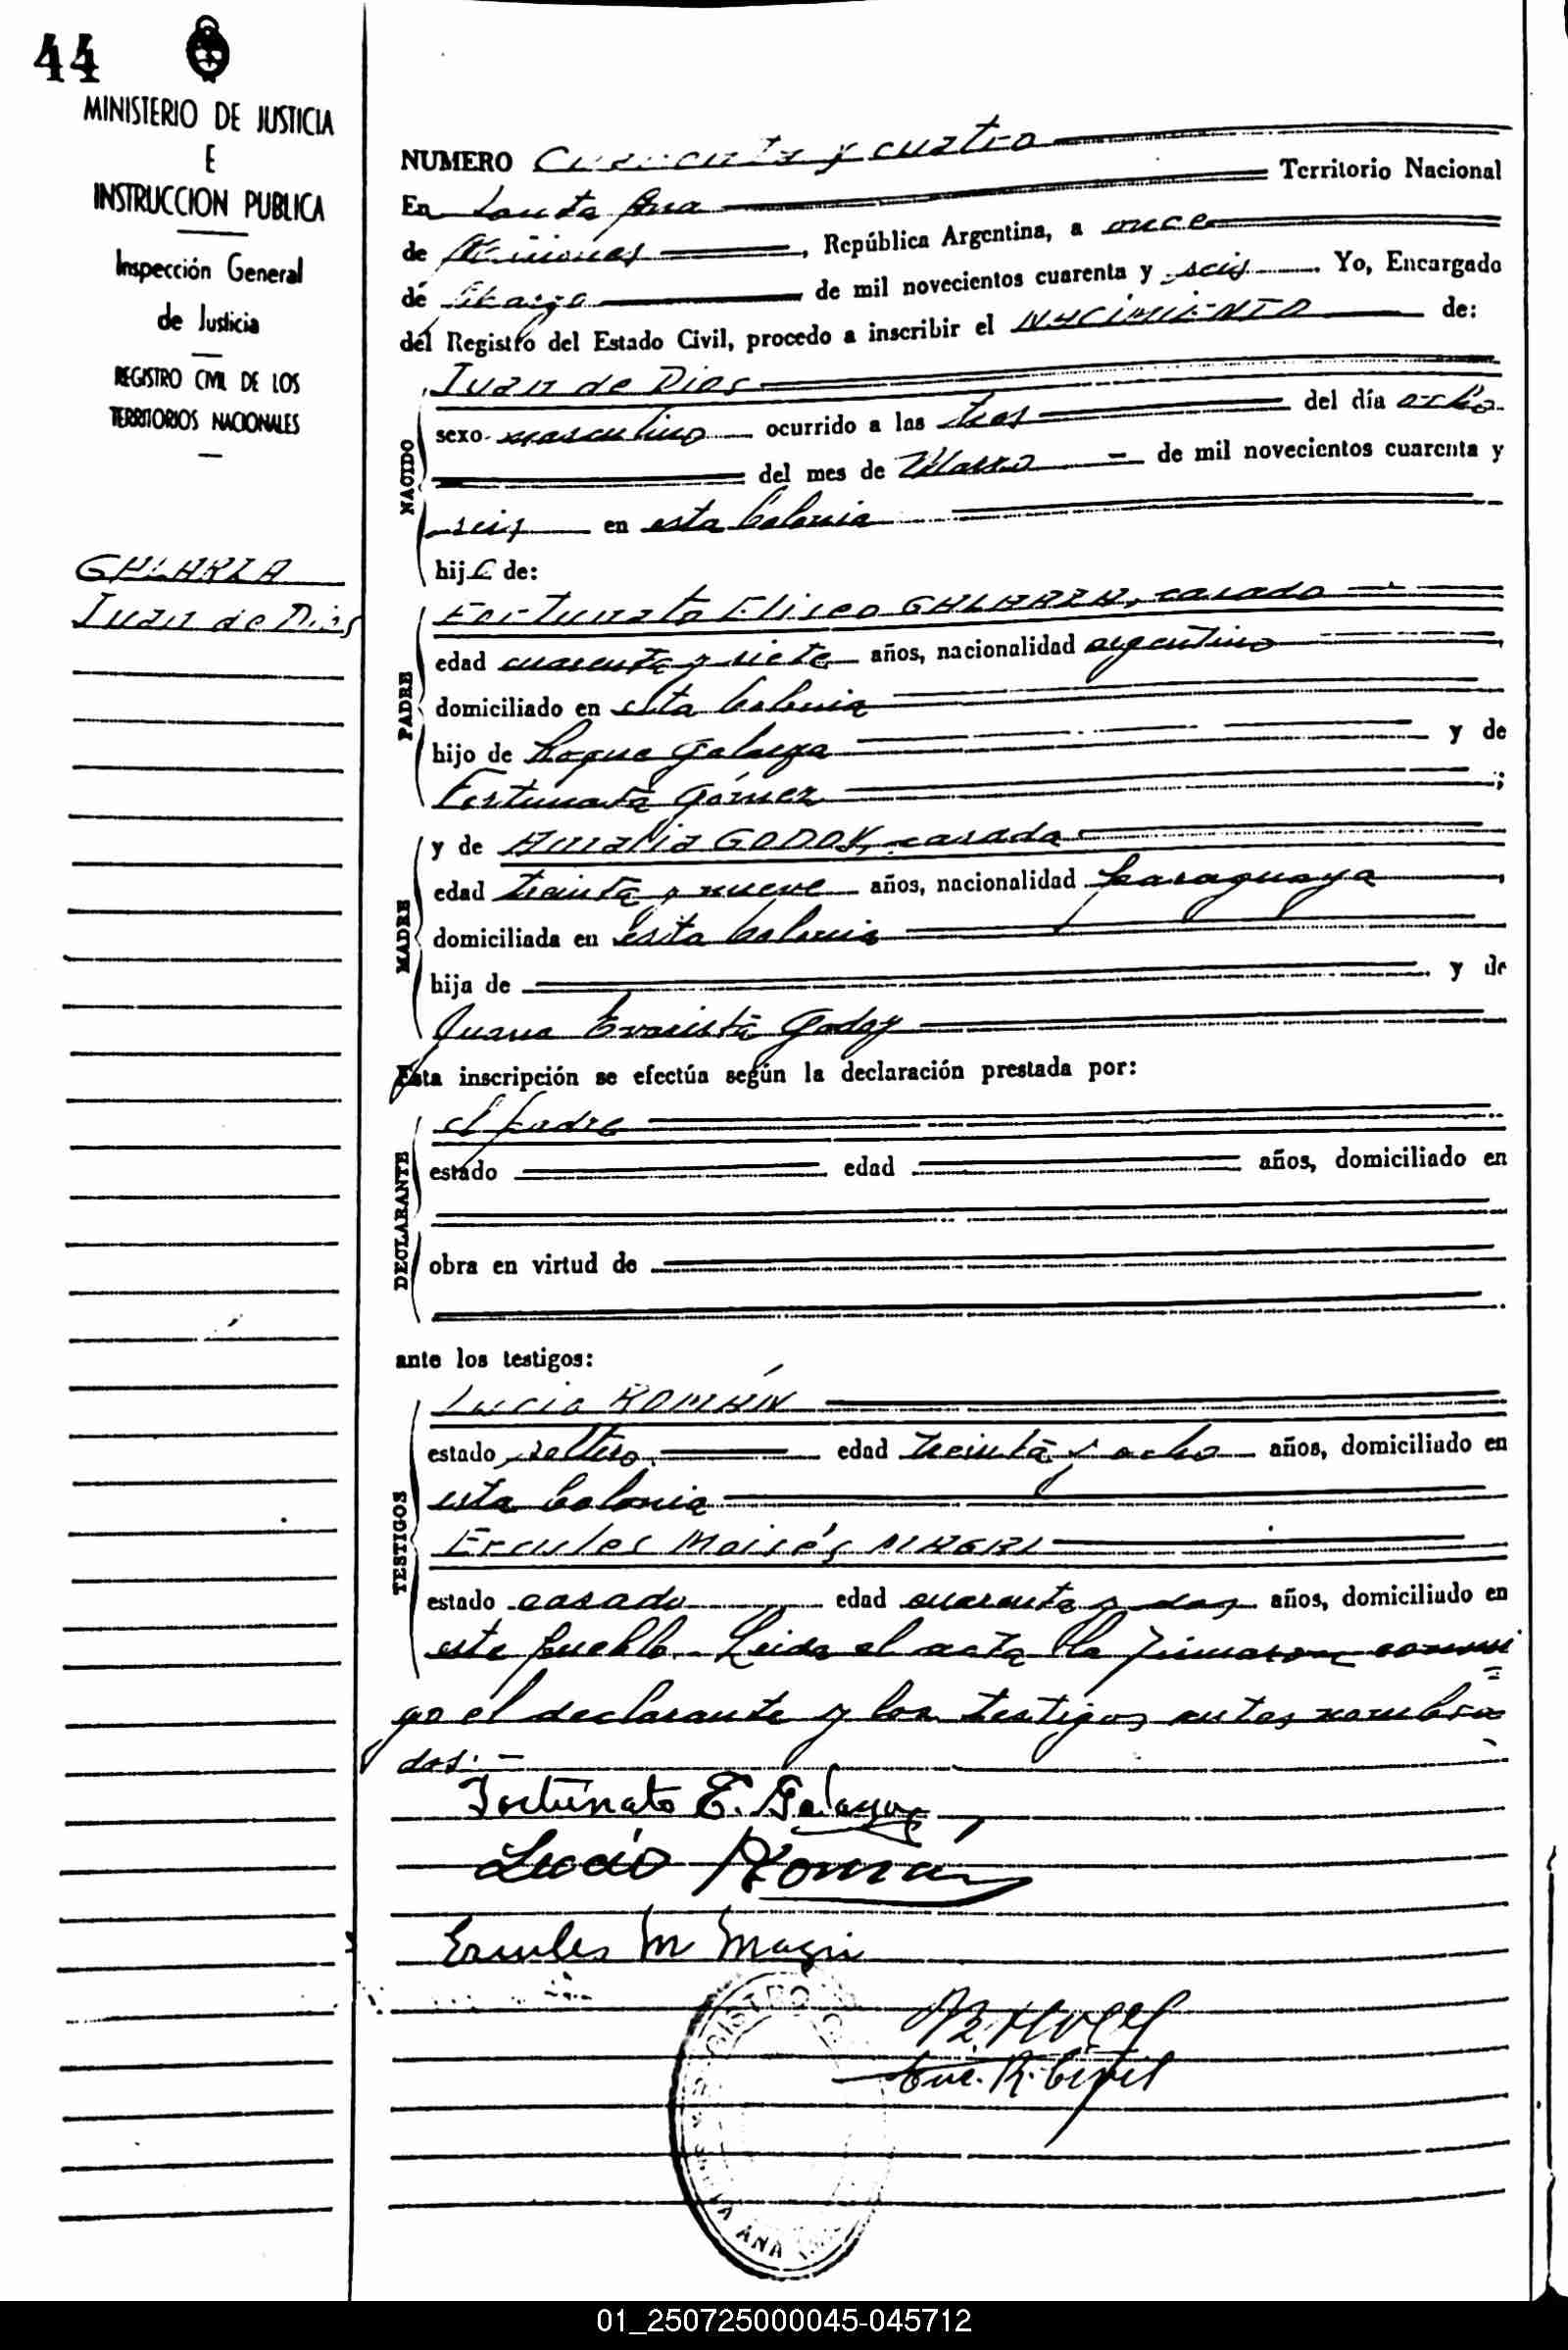 44
MINISTERIO DE JUSTICIA
E
INSTRUCCION PUBLICA
Inspección General
de Justicia
REGISTRO CIVIL DE LOS
TERRITORIOS NACIONALES
GALARZA
Juan de Dios
NUMERO Cuarenta y cuatro
En Santa Ana Territorio Nacional
de Misiones, República Argentina, a once
de Marzo de mil novecientos cuarenta y seis. Yo, Encargado
del Registro del Estado Civil, procedo a inscribir el NACIMIENTO de:
NACIDO
Juan de Dios
sexo masculino ocurrido a las tres del día ocho
del mes de Marzo de mil novecientos cuarenta y
seis en esta Colonia
hijo de:
PADRE
Fortunato Eliseo GALARZA, casado
edad cuarenta y siete años, nacionalidad argentino
domiciliado en esta Colonia
hijo de Roque Galarza y de
Fortunata Gómez ;
MADRE
y de Amalia GODOY, casada
edad treinta y nueve años, nacionalidad paraguaya
domiciliada en esta Colonia
hija de y de
Juana Evarista Godoy
Esta inscripción se efectúa según la declaración prestada por:
DECLARANTE
el padre
estado edad años, domiciliado en
obra en virtud de
ante los testigos:
TESTIGOS
Lucio ROMÁN
estado soltero edad treinta y ocho años, domiciliado en
esta Colonia
Ercules Moisés MAGRI
estado casado edad cuarenta y dos años, domiciliado en
este pueblo. Leida el acta la firmaron conmi
go el declarante y los testigos antes nombra
dos.
Fortunato E. Galarza
Lucio Román
Ercules M Magri
Enc. R. Civil
REGISTRO
SANTA ANA
01_250725000045-045712